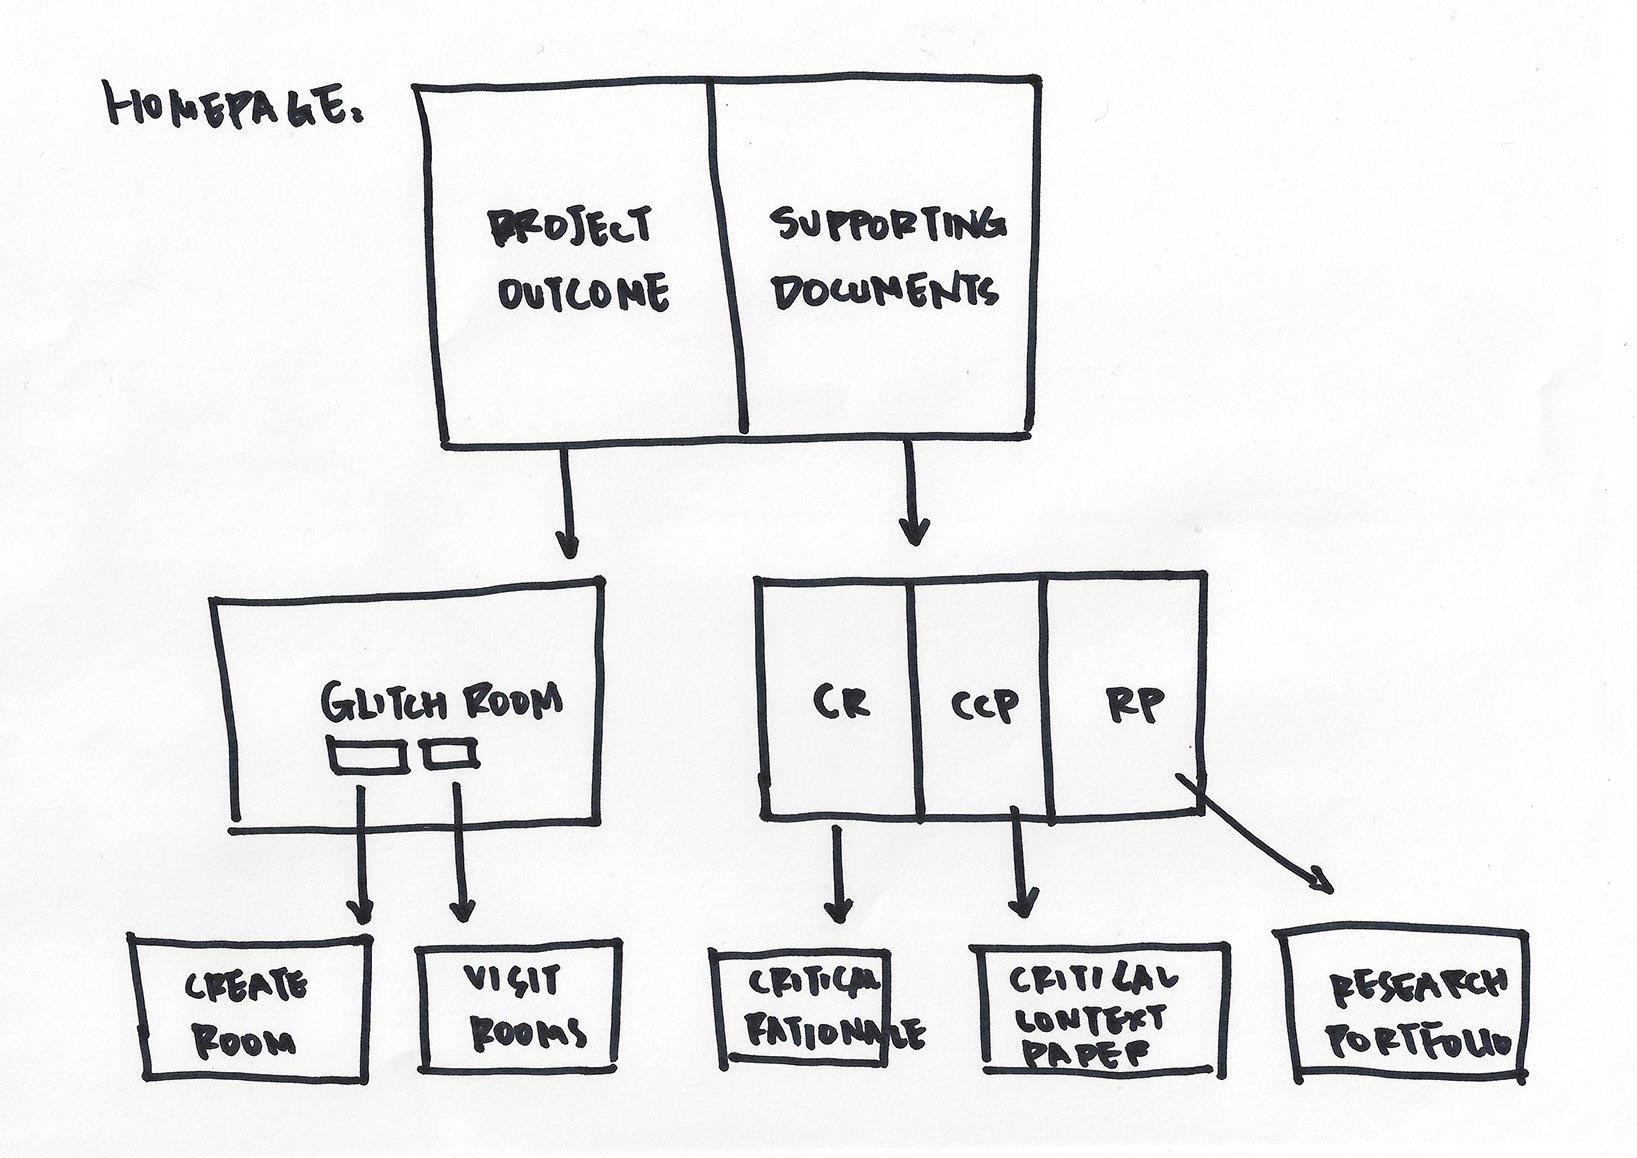 HOMEPAGE:
PROJECT
OUTCOME
SUPPORTING
DOCUMENTS
GLITCH ROOM
CR
CCP
RP
CREATE
ROOM
VISIT
ROOMS
CRITICAL
RATIONALE
CRITICAL
CONTEXT
PAPER
RESEARCH
PORTFOLIO